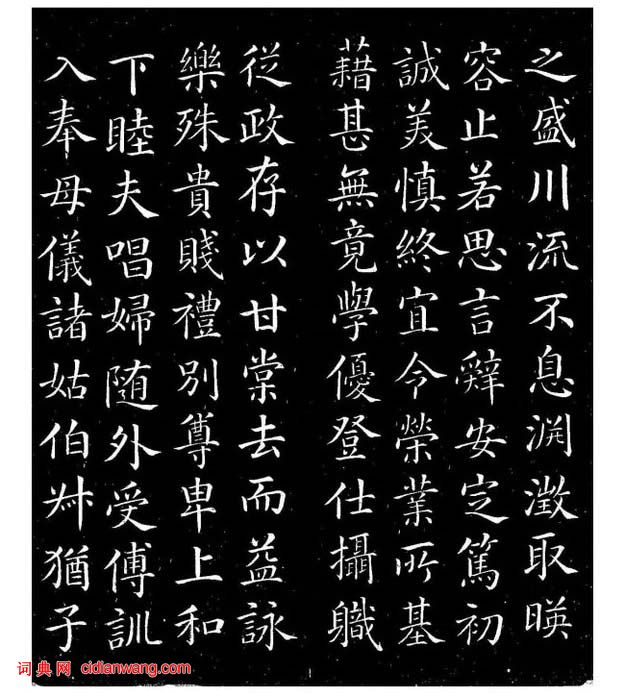 之盛川流不息渊澂取暎
容止若思言辤安定篤初
誠美慎終宜令榮業所基
藉甚無竟學優登仕攝職
從政存以甘棠去而益詠
樂殊貴賤禮別尊卑上和
下睦夫唱婦随外受傅訓
入奉母儀諸姑伯叔猶子
词典网 cidianwang.com